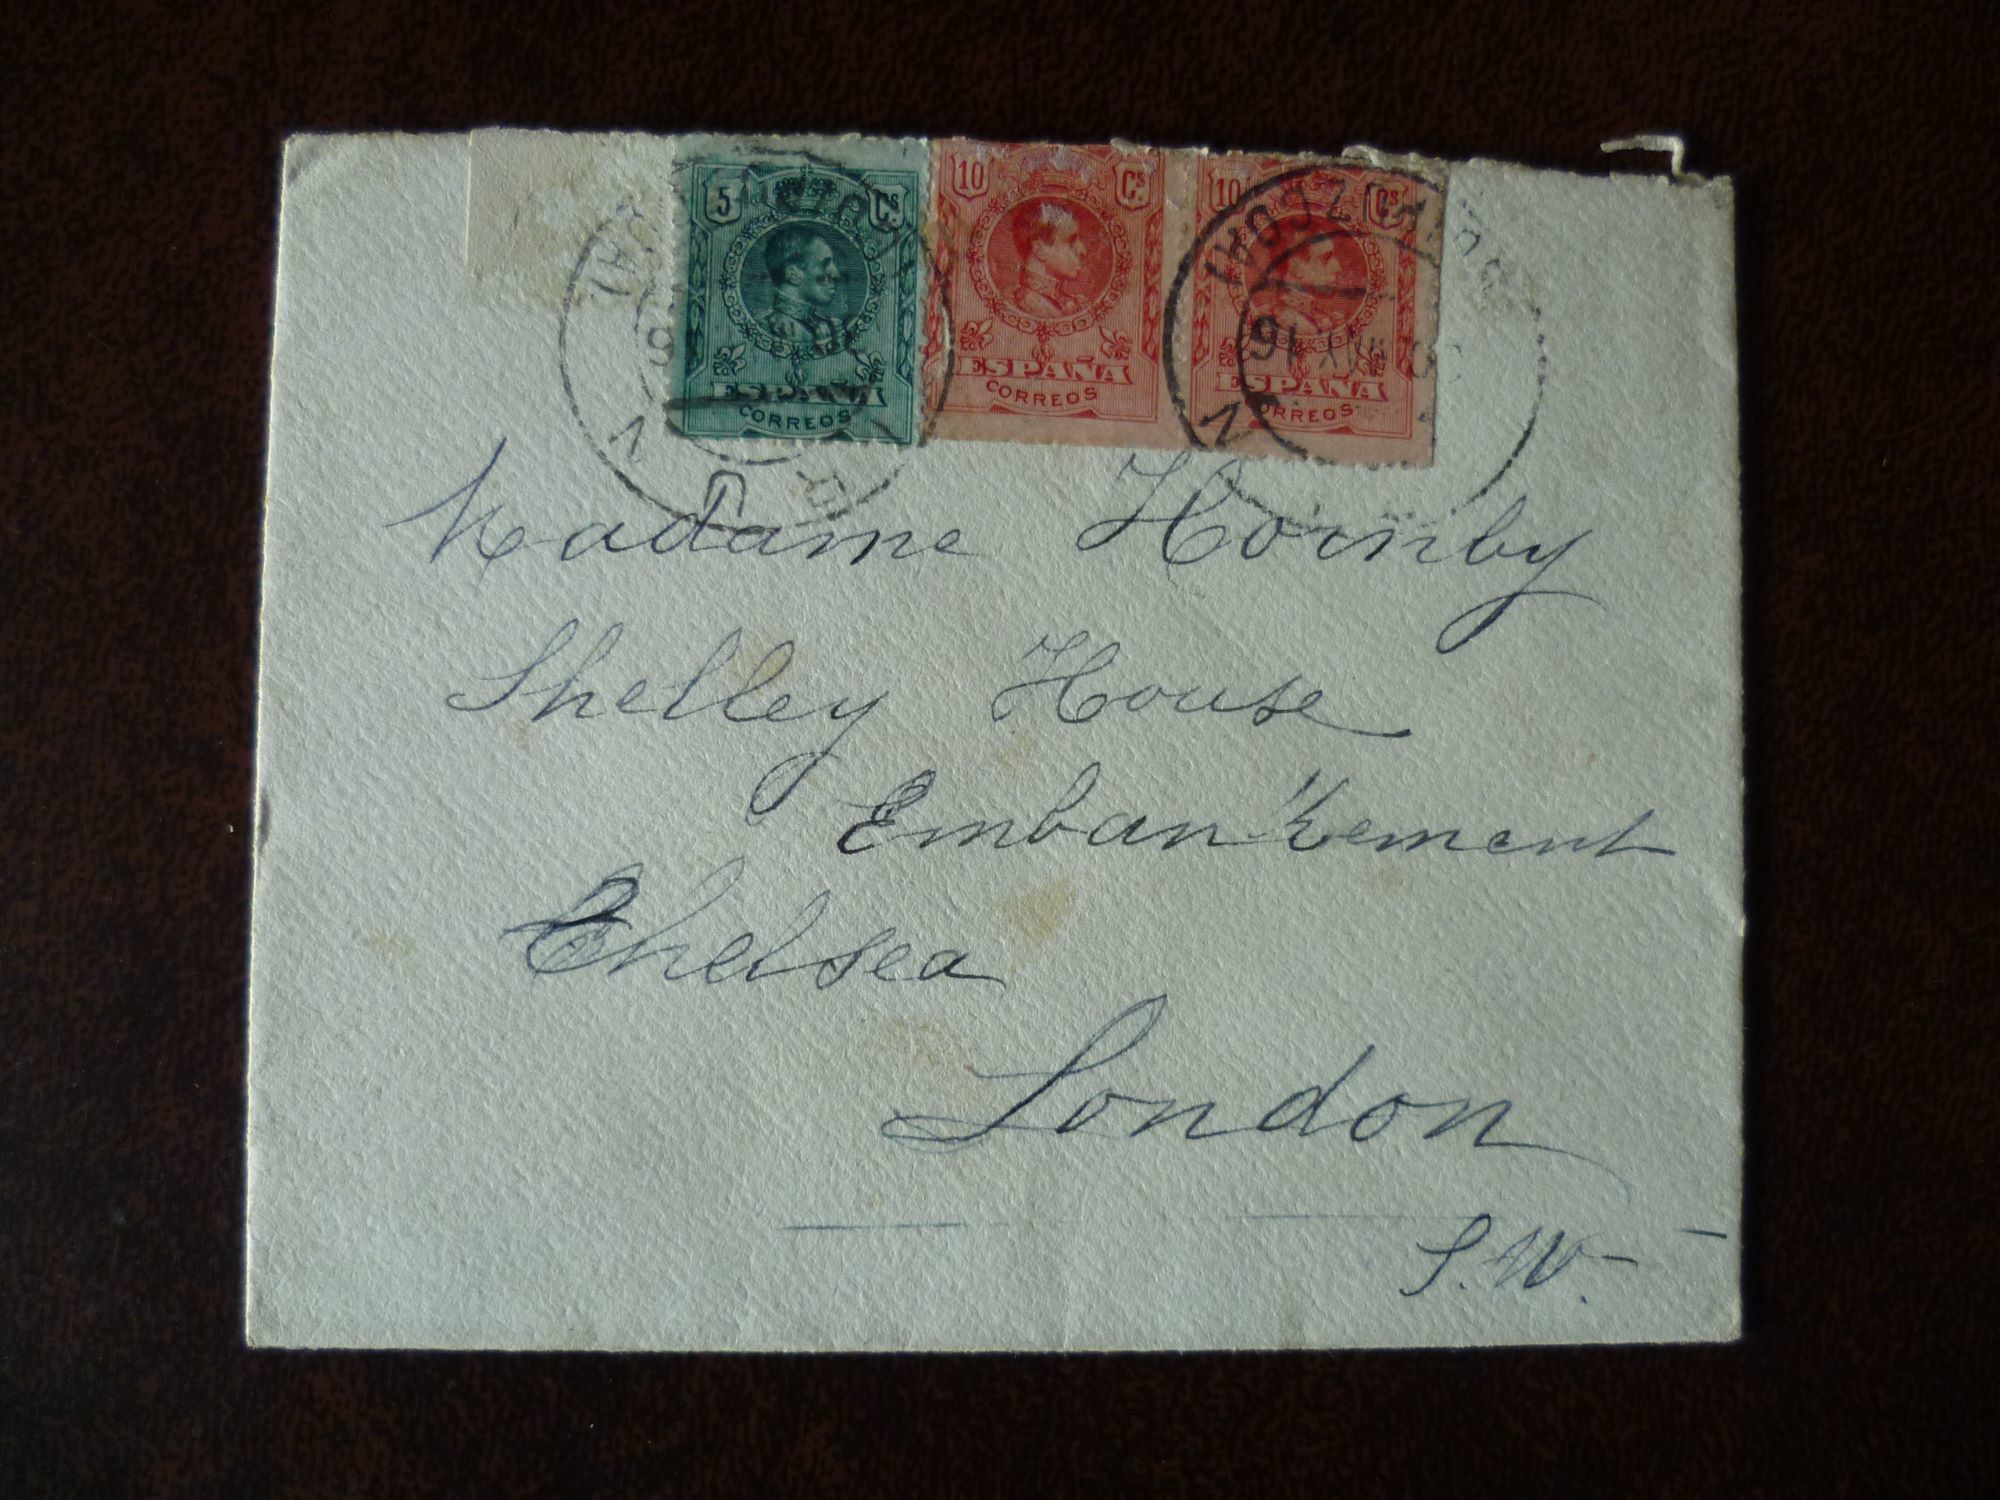 5 Cs 10 Cs 10 Cs
ESPAÑA ESPAÑA ESPAÑA
CORREOS CORREOS CORREOS
16
Madame Hornby
Shelley House
Embankement
Chelsea
London
S.W.